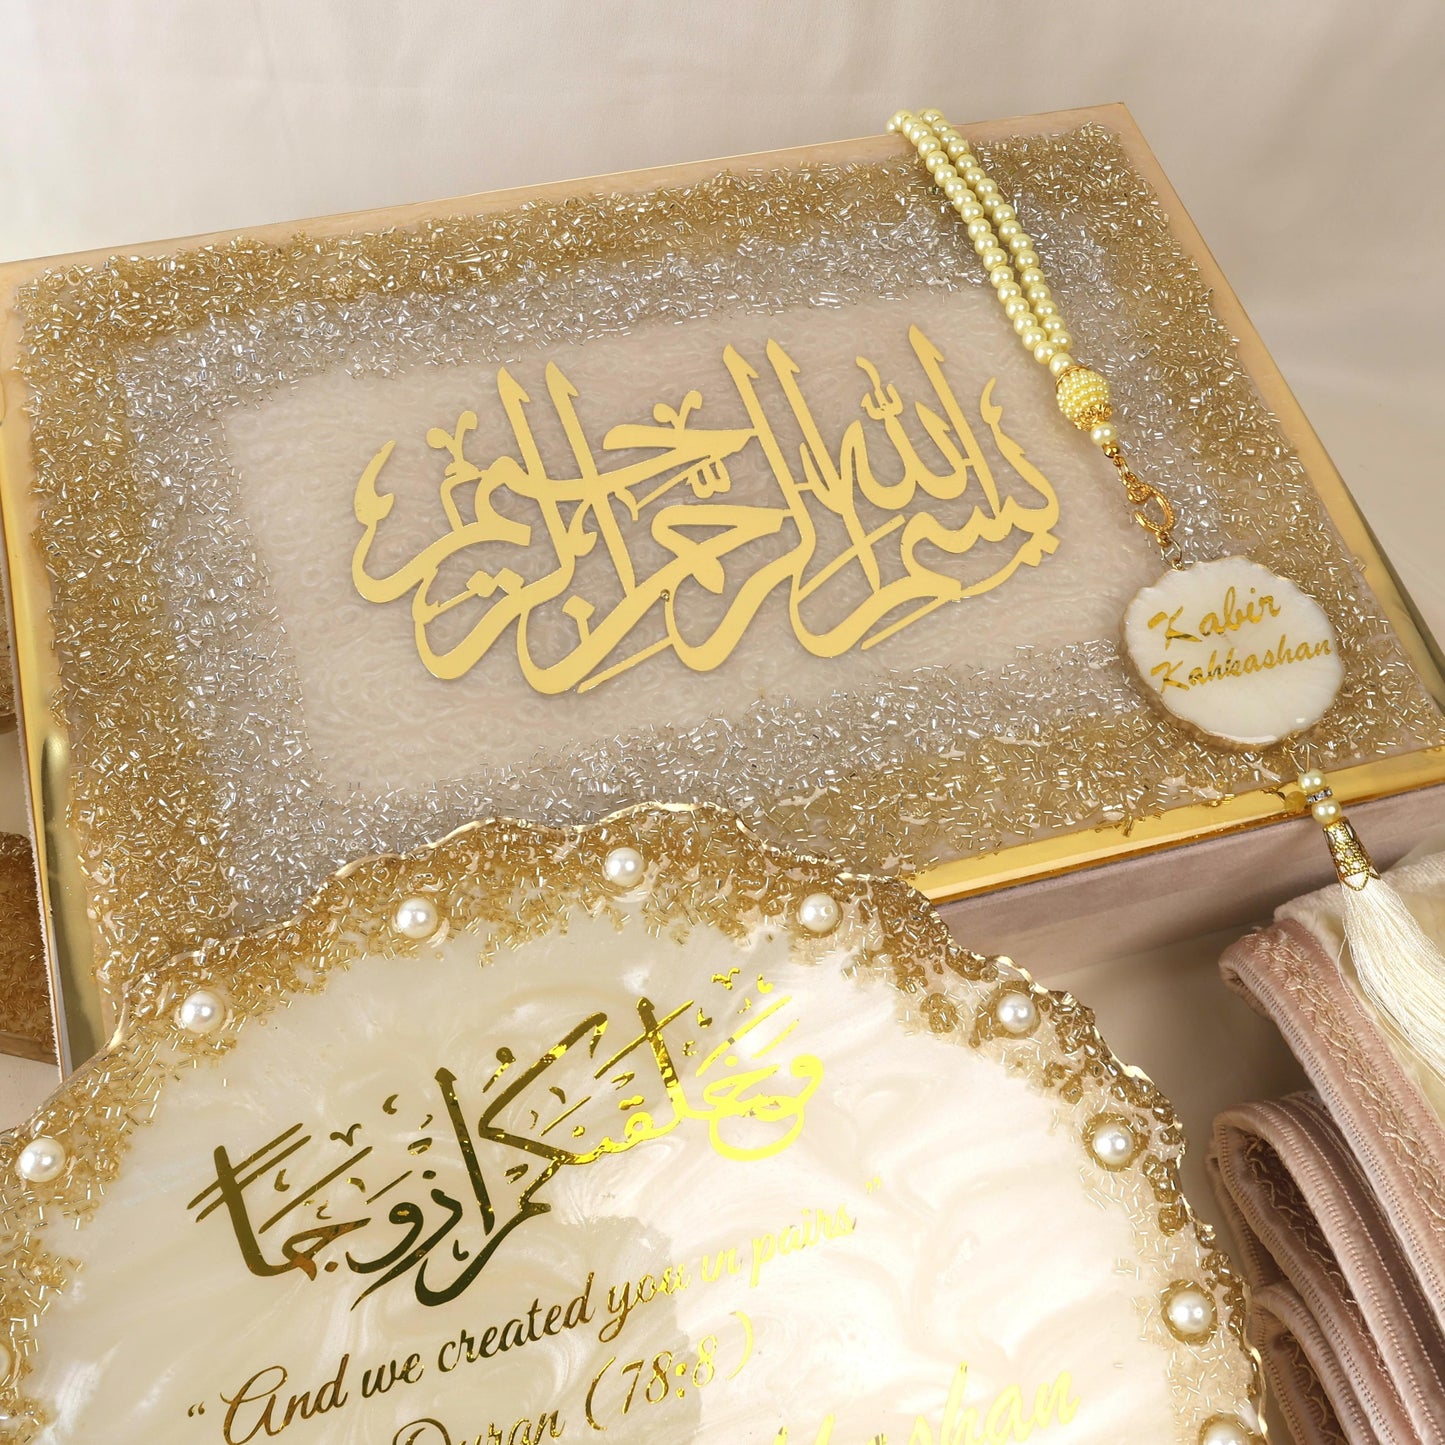 بسم الله الرحمن الرحيم
Kabir
Kahkashan
وخلقنكم ازوجا
“And we created you in pairs”
Quran (78:8)